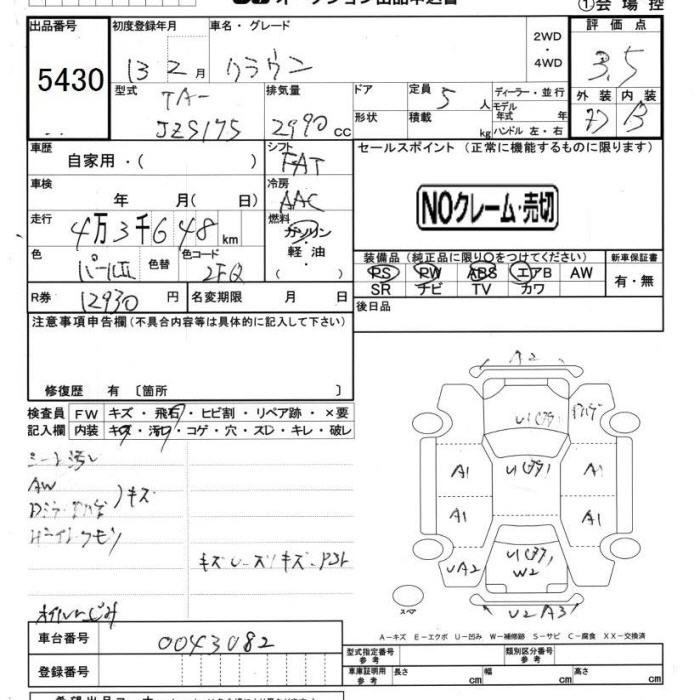 オークション出品申込書
①会場控
出品番号 初度登録年月 車名・グレード 2WD ・ 4WD 評価点
5430 13 2 月 クラウン 3.5
型式 TA- JZS175 排気量 2990 cc ドア 定員 5 人 ディーラー・並行
形状 積載 kg モデル年式 年 ハンドル 左・右
外装 内装
B
車歴 自家用・( ) シフト FAT
セールスポイント (正常に機能するものに限ります)
車検 年 月( 日) 冷房 AAC
NOクレーム・売切
走行 4万3千648 km 燃料 ガソリン・軽油・( )
色 パールII 色替 色コード 2FQ
装備品 (純正品に限り○をつけてください) 新車保証書
PS PW ABS エアB AW 有・無
SR ナビ TV カワ
R券 12930 円 名変期限 月 日
後日品
注意事項申告欄(不具合内容等は具体的に記入して下さい)
修復歴 有 〔箇所 〕
検査員 FW キズ・飛石・ヒビ割・リペア跡・×要
記入欄 内装 キズ・汚れ・コゲ・穴・スレ・キレ・破レ
シート汚レ
AW
キズ
A2
A1 A1
A1 A1
UA2 W2
U2 A3
スペア
A-キズ E-エクボ U-凹み W-補修跡 S-サビ C-腐食 XX-交換済
オイルにじみ
車台番号 0043082
登録番号
型式指定番号 参考 類別区分番号 参考
車庫証明用 参考 長さ cm 幅 cm 高さ cm
希望出品コーナー